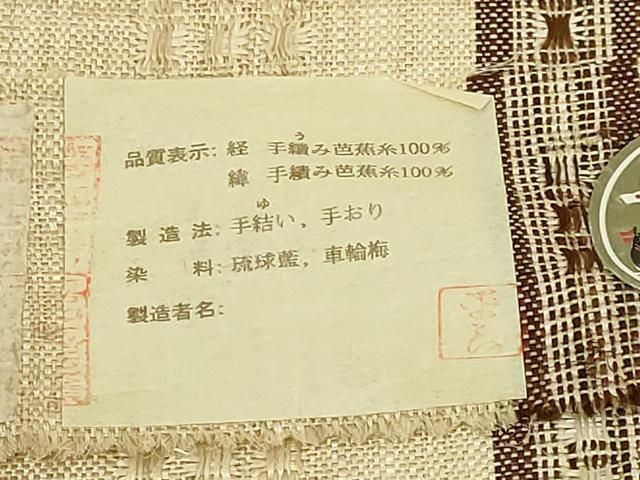 品質表示: 経 手績み芭蕉糸100%
緯 手績み芭蕉糸100%
製造法: 手結い, 手おり
染料: 琉球藍, 車輪梅
製造者名: